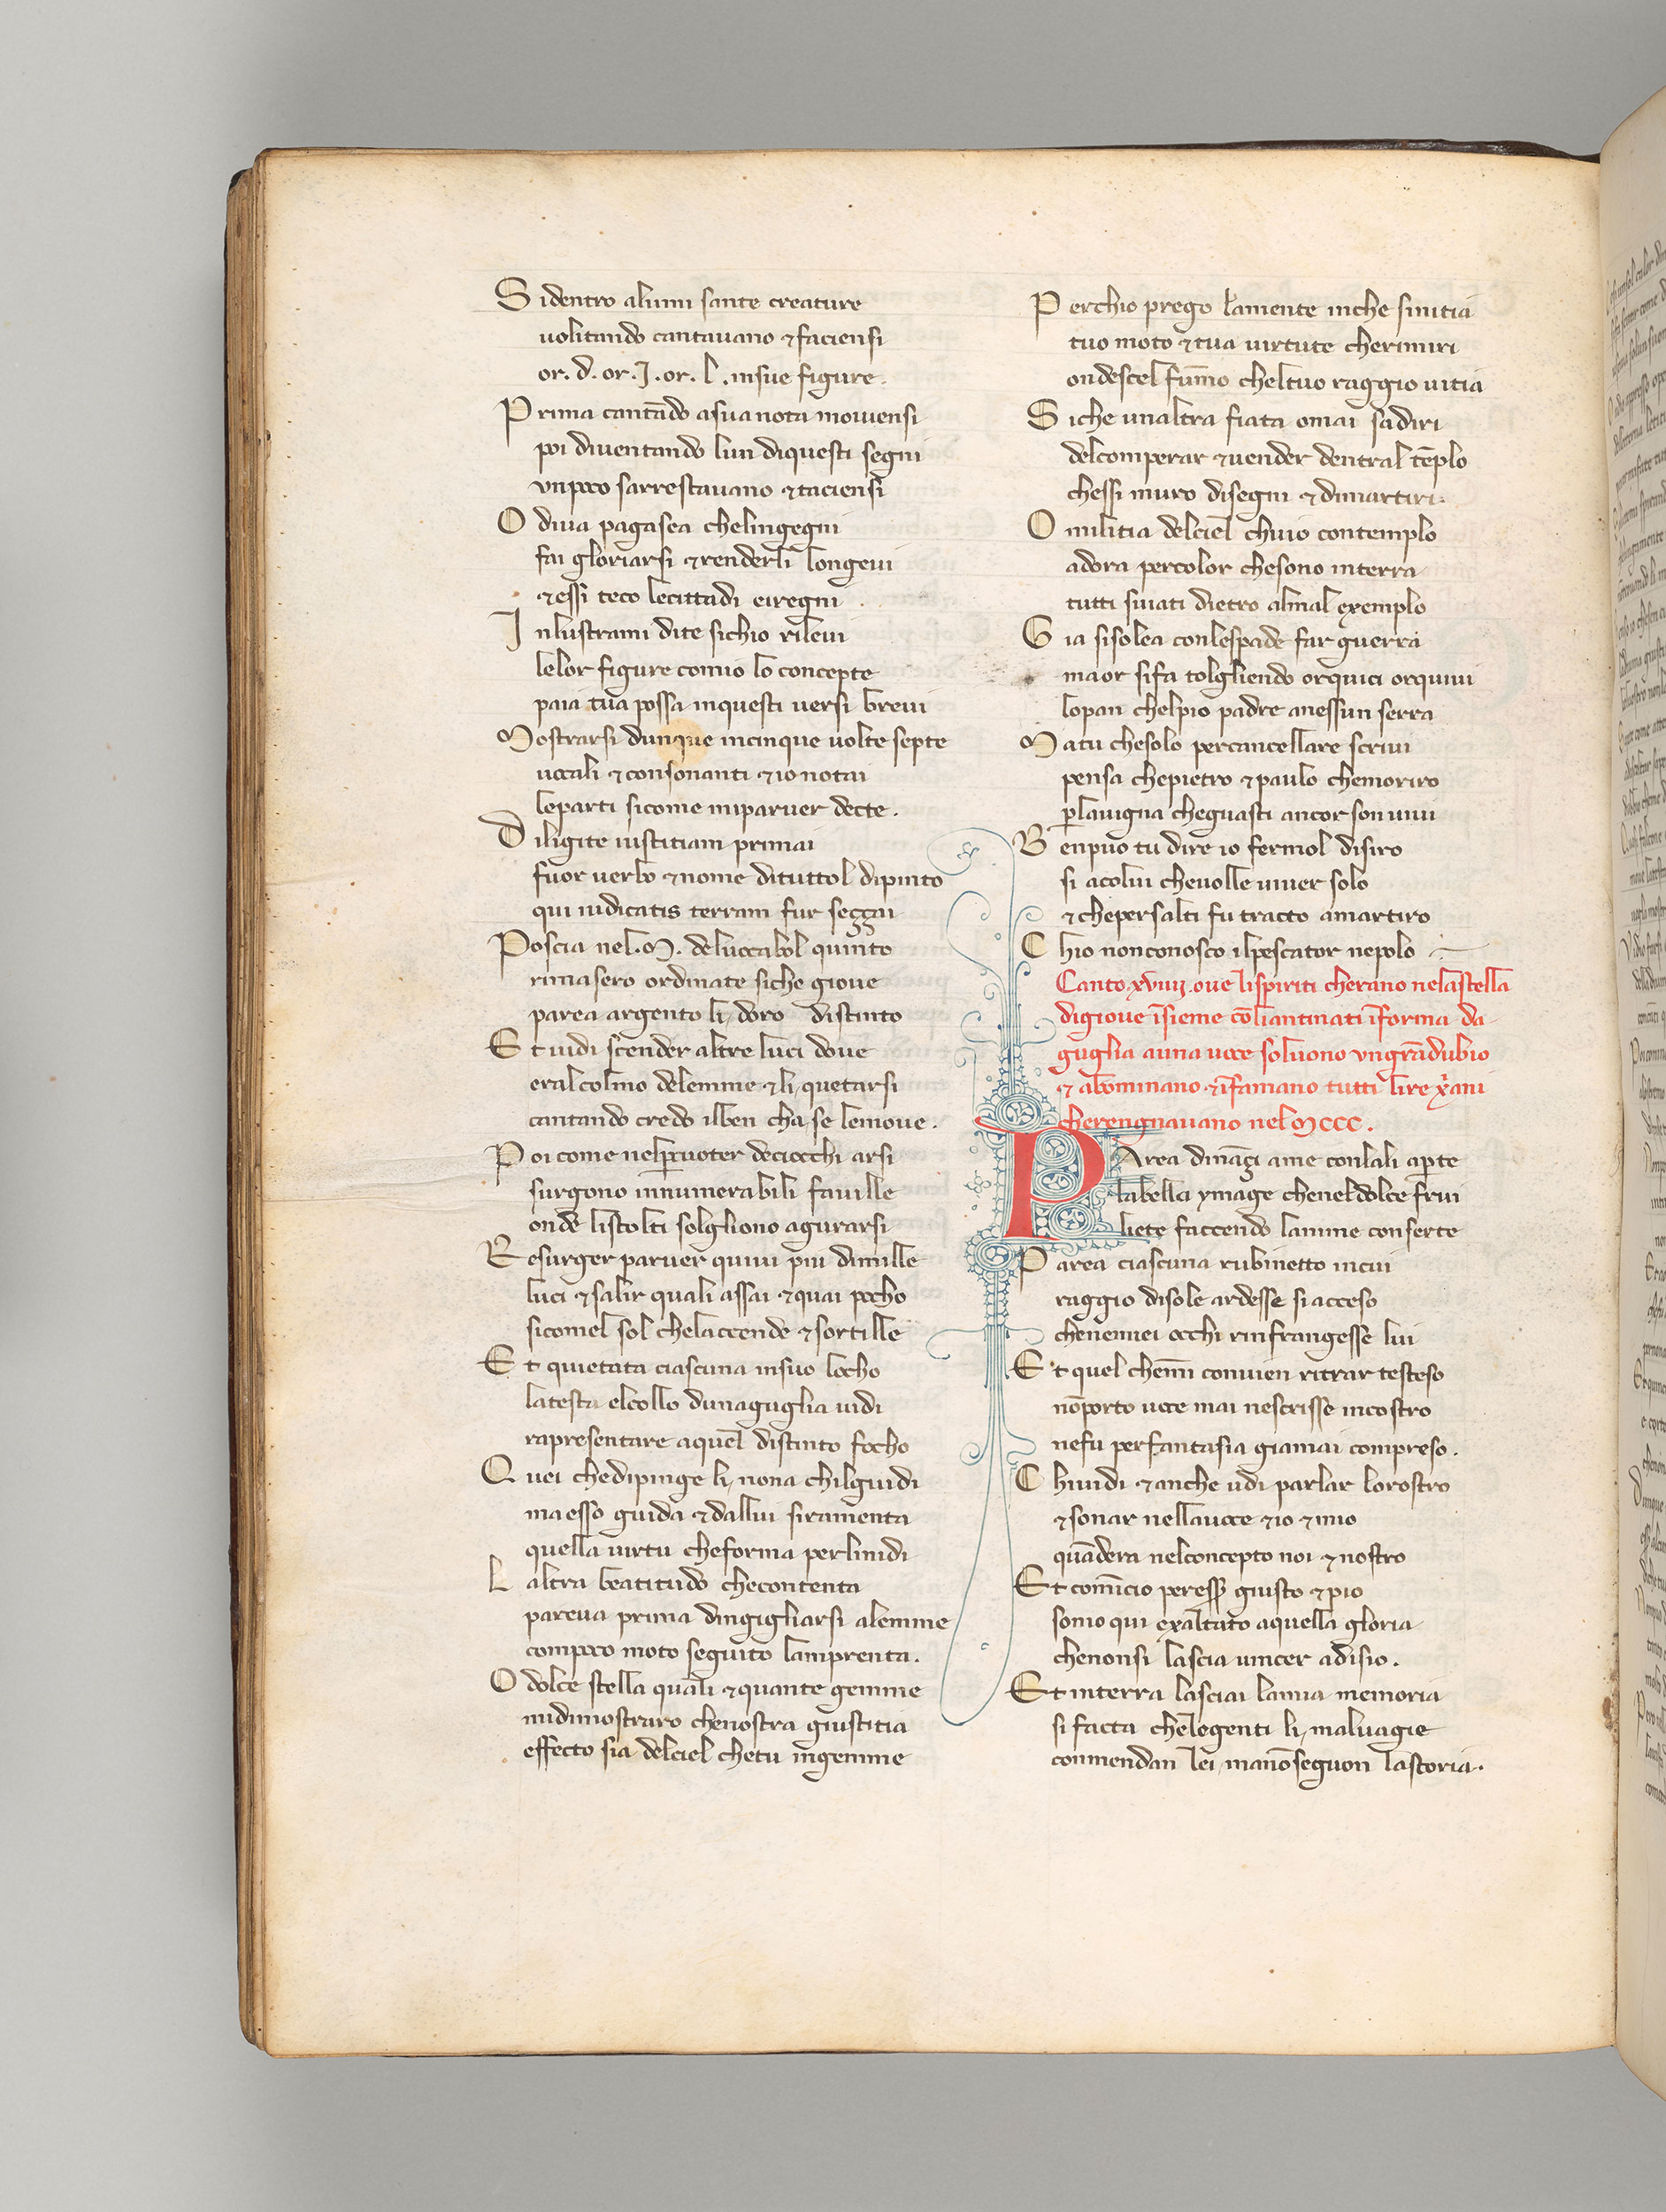 S identro alumi sante creature
uolitando cantauano & faciensi
or. d. or. J. or. l. insue figure.
P rima cantādo asua nota mouiensi
poi diuentando lun diquesti segni
vnpoco sarrestauano & taciensi
O diua pagasea chelingegni
fai gloriarsi & renderli longeui
& essi teco lecittadi eiregni
J nlustrami dite sichio rileui
lelor figure comio lo concepte
paia tua possa inquesti uersi breui
M ostrarsi dunque incinque uolte septe
uocali & consonanti & io notai
leparti sicome miparuer decte.
D iligite iustitiam primai
fuor uerbo & nome dituttol dipinto
qui iudicatis terram fur seççai
P oscia nel .M. deluocabol quinto
rimasero ordinate siche gioue
parea argento li, doro distinto
E t uidi scender altre luci doue
eral colmo delemme & li, quetarsi
cantando credo ilben cha, se lemoue.
P oi come nelpcuoter deciocchi arsi
surgono innumerabili fauille
onde listolti solghono agurarsi
R esurger paruer quiui piu dimille
luci & salir quali assai & quai pocho
sicomel sol chelaccende & sortille
E t quietata ciascuna insuo locho
latesta elcollo dunaguglia uidi
rapresentare aquel distinto focho
Q uei chedipinge li, nona chilguidi
ma esso guida & dallui siramenta
quella uirtu cheforma perlinidi
L altra beatitudo checontenta
pareua prima dingigliarsi alemme
compoco moto seguito lamprenta.
O dolce stella quali & quante gemme
midimostraro chenostra giustitia
effecto sia delciel chetu ingemme
P erchio prego lamente inche sinitia
tuo moto & tua uirtute cherimiri
ondescel fūmo cheltuo raggio uitia
S iche unaltra fiata omai sadiri
delcomperar & uender dentral tēplo
chessi muro disegni & dimartiri.
O militia delciel chuio contemplo
adora percolor chesono interra
tutti suiati dietro almal exemplo
G ia sisolea conlespade far guerra
maor sifa tolgliendo orquici orquiui
lopan chelpio padre anessun serra
M atu chesolo percancellare scriui
pensa chepietro & paulo chemoriro
plauigna cheguasti ancor son uiui
B enpuo tu dire io fermol disiro
si acolui cheuolle uiuer solo
& chepersalti fu tracto amartiro
C hio nonconosco ilpescator nepolo
Canto.xviiij.oue lispiriti cherano nelastella
digioue īsieme cōliantinati īforma da
guglia auna uoce soluono vngrādubio
& abominano & īfamano tutti lire xāni
cherengnauano nel MCCC.
P Area dināçi ame conlali apte
labella ymage cheneldolce frui
liete faccendo lanime conserte
P area ciascuna rubinetto incui
raggio disole ardesse si acceso
chenemiei occhi rinfrangesse lui
E t quel chemī conuien ritrar testeso
nōporto uoce mai nescrisse incostro
nefu perfantasia giamai compreso.
C hiuidi & anche udi parlar lorostro
& sonar nellauoce & io & mio
quādera nelconcepto noi & nostro
E t comīcio peresser giusto & pio
sonio qui exaltato aquella gloria
chenonsi lascia uincer adisio.
E t interra lasciai lamia memoria
si facta chelegenti li, maluagie
commendan lei, manōseguon lastoria.